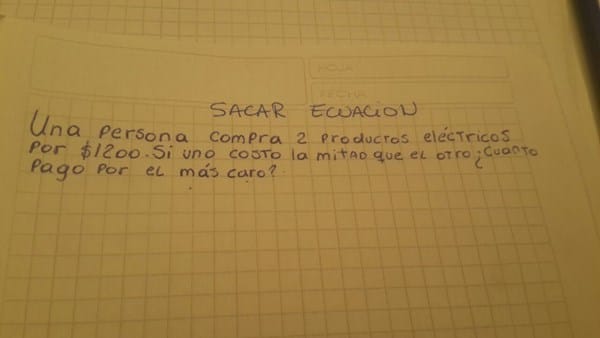 HOJA
FECHA
SACAR ECUACION
Una persona compra 2 productos eléctricos
por $1200. Si uno costo la mitad que el otro ¿Cuanto
pago por el más caro?